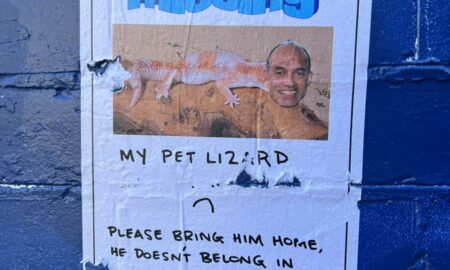 MY PET LIZARD
PLEASE BRING HIM HOME,
HE DOESN'T BELONG IN